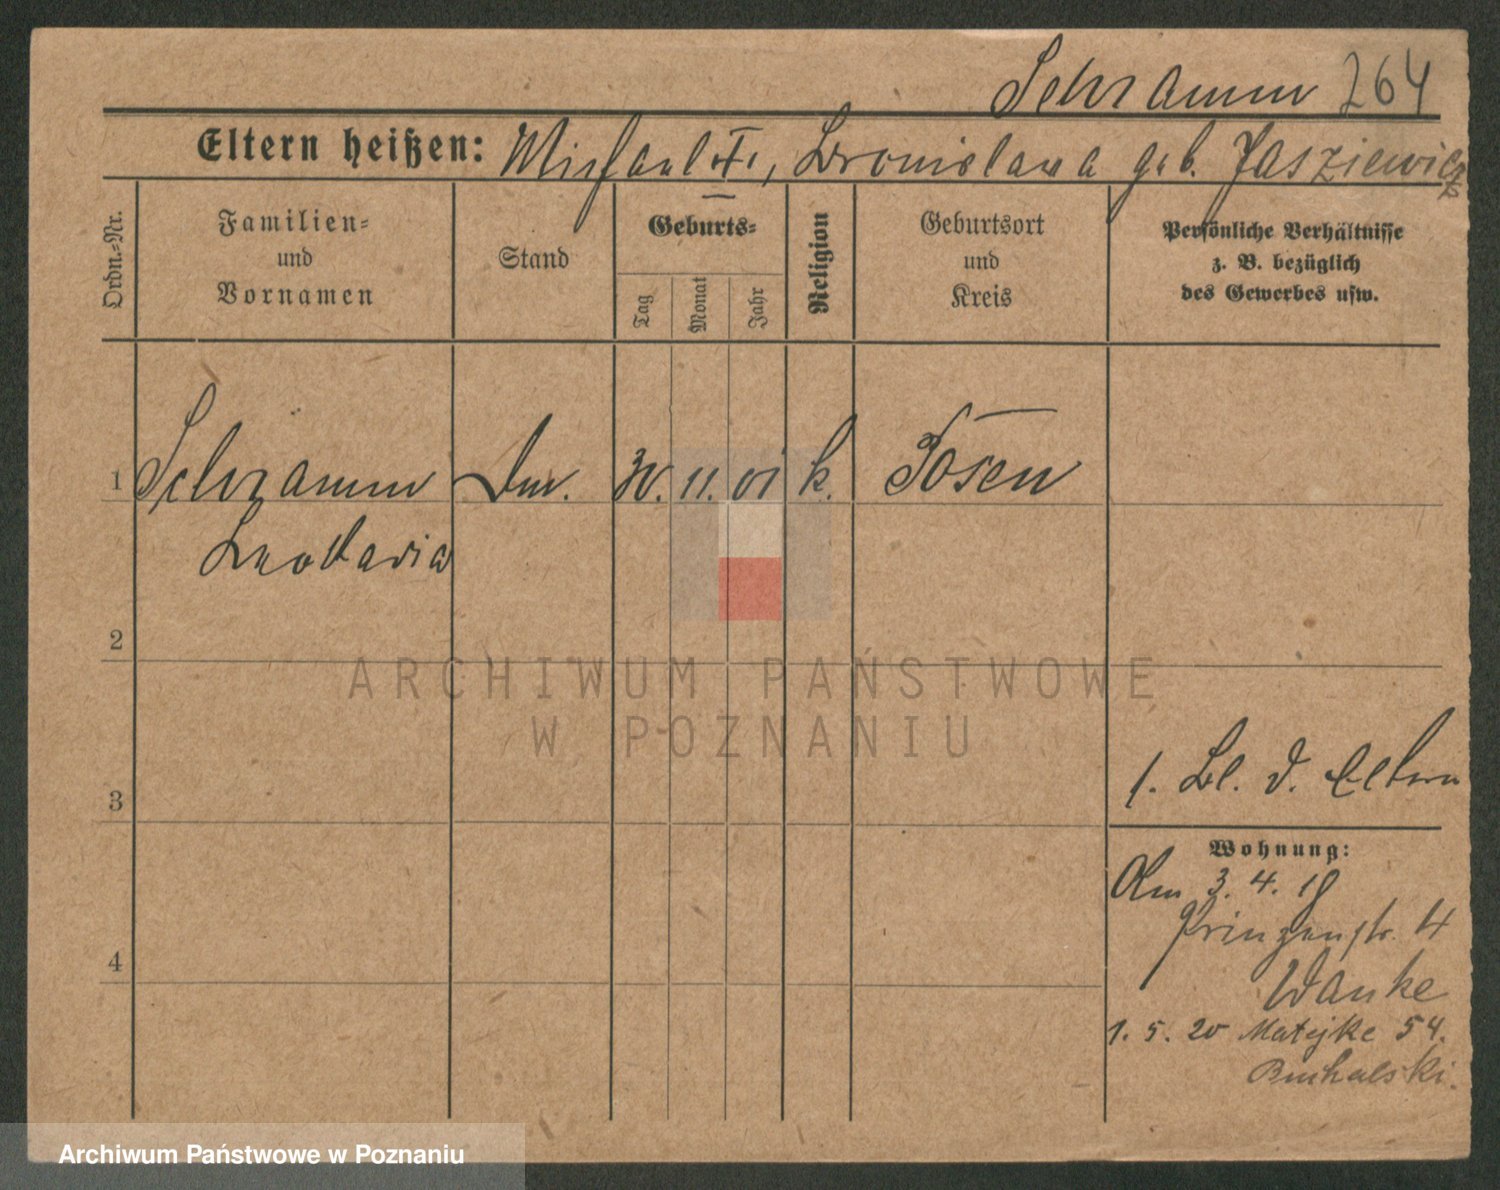 Schramm 264
Eltern heißen: Michael †, Bronislawa geb. Jasziewicz
Ordn.-Nr.
Familien-
und
Vornamen
Stand
Geburts-
Tag
Monat
Jahr
Religion
Geburtsort
und
Kreis
Persönliche Verhältnisse
z. B. bezüglich
des Gewerbes usw.
1 Schramm 30. 11. 01 k. Posen
Leokadia
2
3
1. Bl. d. Eltern
Wohnung:
3. 4. 18
Prinzenstr. 4
Wanke
4
1. 5. 20 Matejke 54.
ARCHIWUM PAŃSTWOWE
W POZNANIU
Archiwum Państwowe w Poznaniu